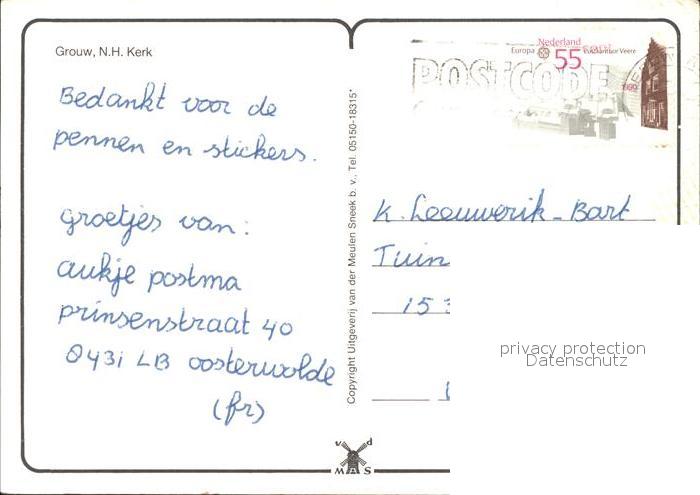 Grouw, N.H. Kerk
Bedankt voor de
pennen en stickers.
groetjes van:
aukje postma
prinsenstraat 40
8431 LB oosterwolde
(fr)
Copyright Uitgeverij van der Meulen Sneek b. v., Tel. 05150-18315*
v d
MAS
Nederland
Europa
55
Veere
POSTCODE
K. Leeuwerik-Bart
Tuin
15
privacy protection
Datenschutz